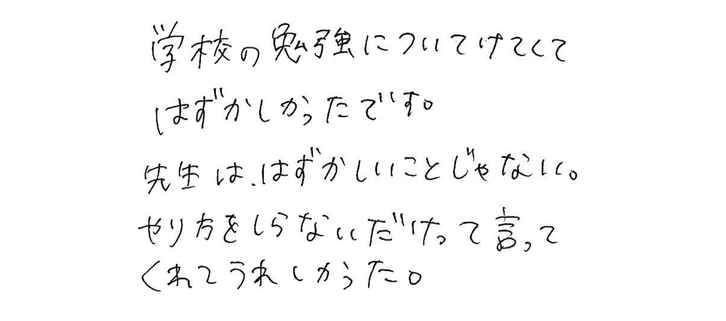 学校の勉強についてけてくて
はずかしかったです。
先生は、はずかしいことじゃない。
やり方をしらないだけって言って
くれてうれしかった。